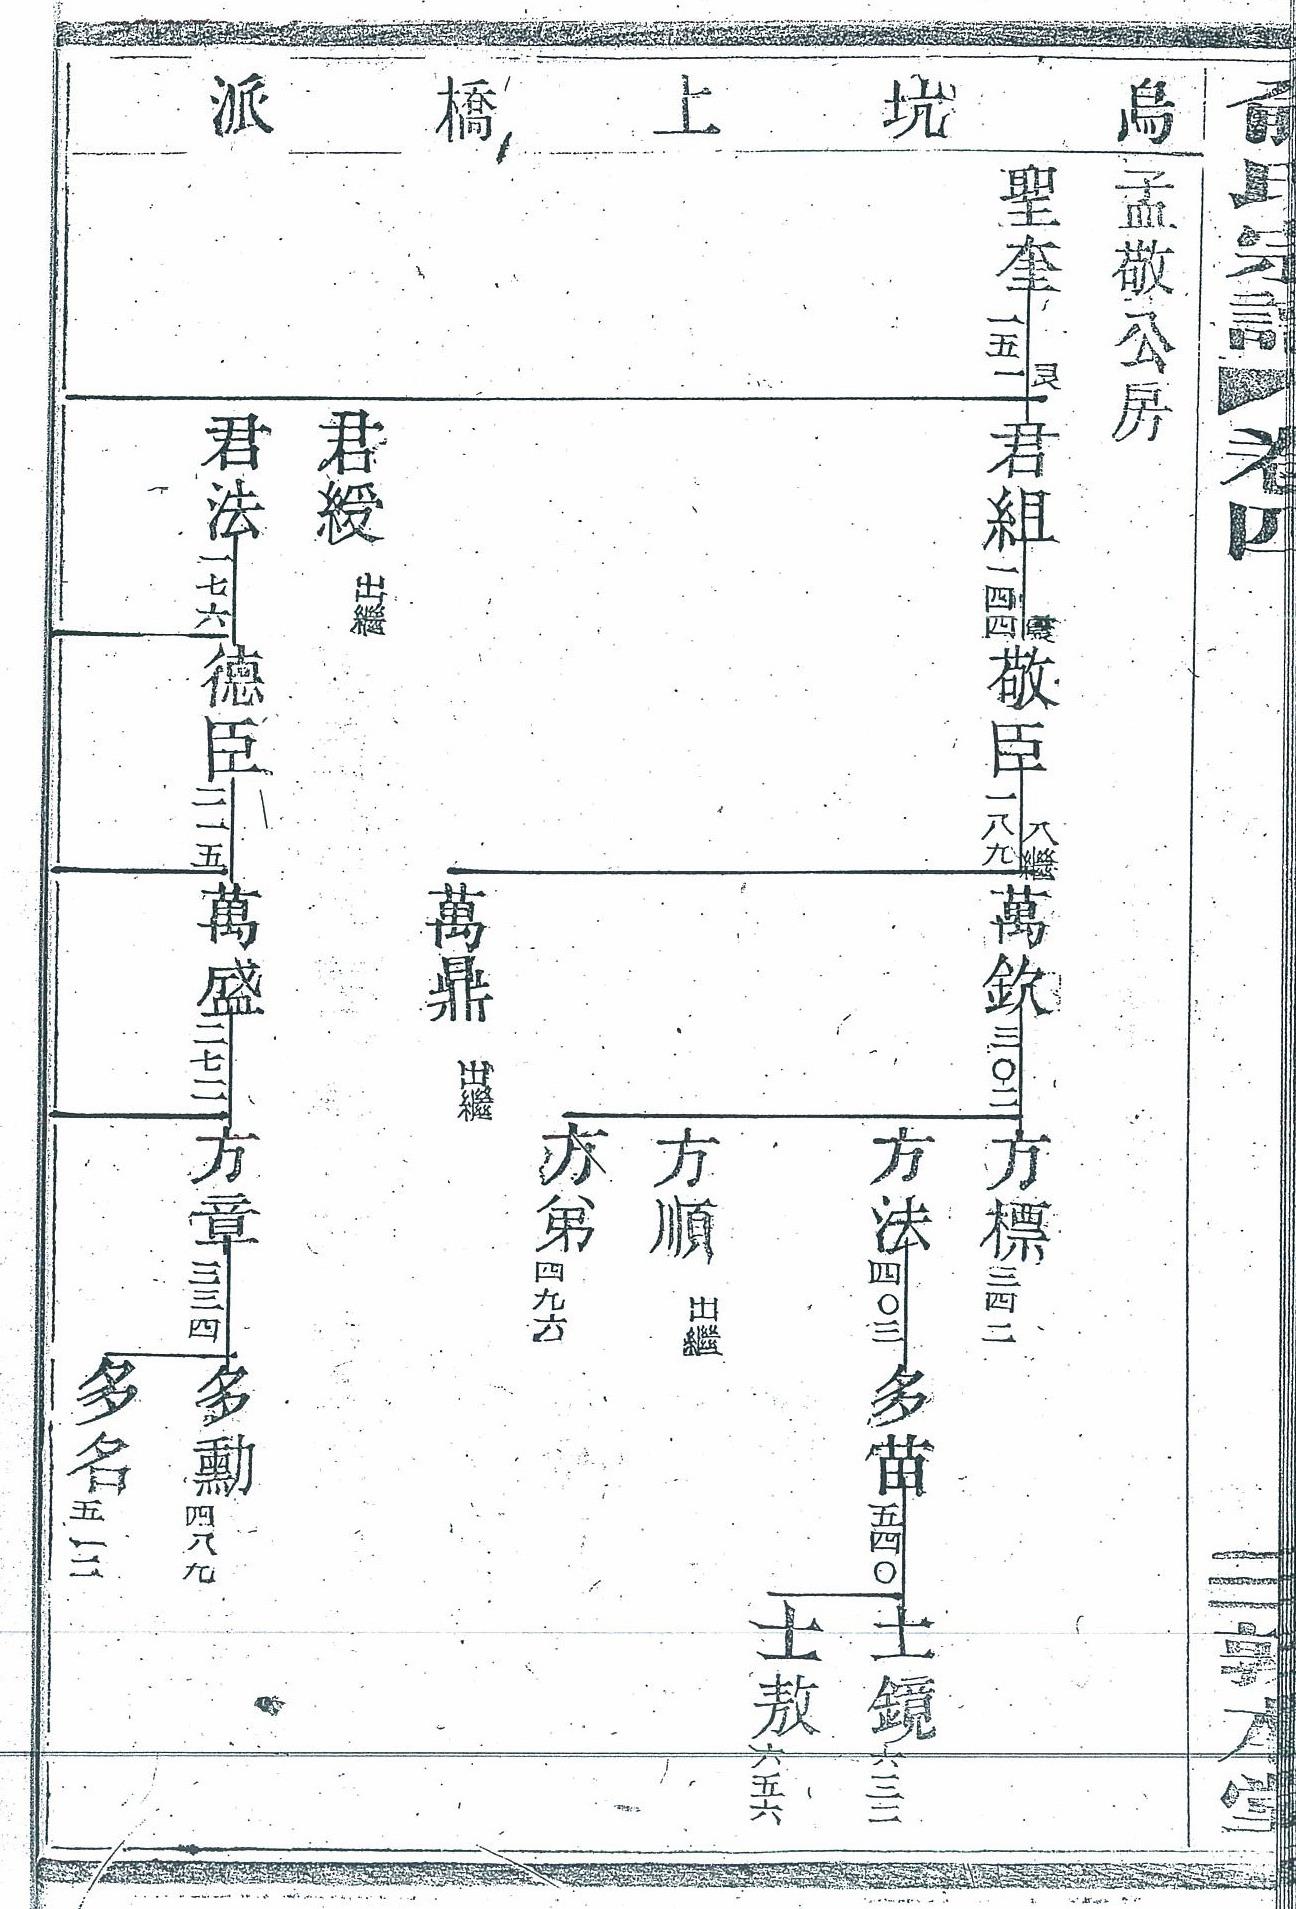 俞氏宗譜 卷四
三 敦本堂
烏坑上橋派
孟敬公房
聖奎 一五一 良
君組 一四四 震
敬臣 一八九 入繼
萬欽 三〇二
方標 三四二
方法 四〇三
多苗 五四〇
士鏡 六三二
士敖 六五六
方順 出繼
方弟 四九六
萬鼎 出繼
君綬 出繼
君法 一七六
德臣 二一五
萬盛 二七二
方章 三三四
多勳 四八九
多名 五一二